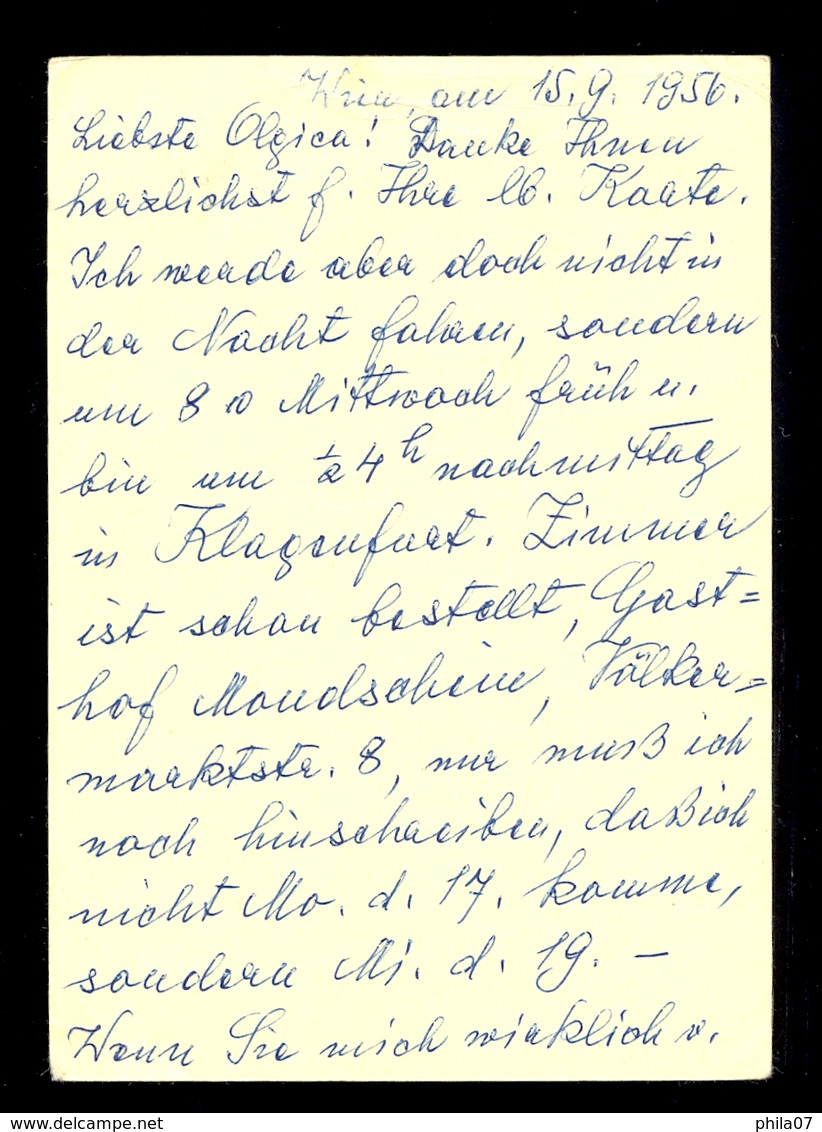 Wien, am 15. 9. 1956.
Liebste Olgica! Danke Ihnen
herzlichst f. Ihre lb. Karte.
Ich werde aber doch nicht in
der Nacht fahren, sondern
um 8 0 Mittwoch früh u.
bin um ½ 4 h nachmittag
in Klagenfurt. Zimmer
ist schon bestellt, Gast=
hof Mondschein, Völker=
marktstr. 8, nur muß ich
noch hinschreiben, daß ich
nicht Mo. d. 17. komme,
sondern Mi. d. 19. –
Wenn Sie mich wirklich v.
www.delcampe.net
phila07